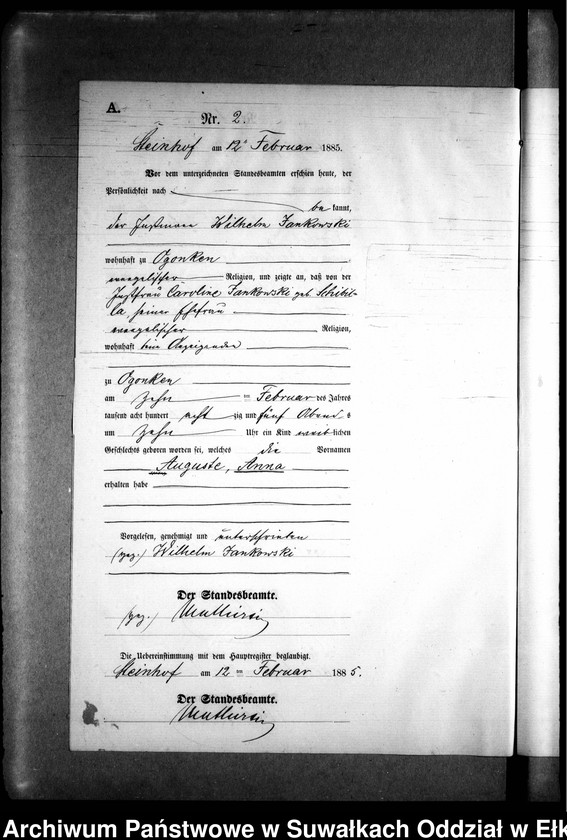 A.
Nr. 2.
Steinhof am 12ᵗ Februar 1885.
Vor dem unterzeichneten Standesbeamten erschien heute, der
Persönlichkeit nach
bekannt,
der Instmann Wilhelm Jankowski
wohnhaft zu Ogonken
evangelischer Religion, und zeigte an, daß von der
Instfrau Caroline Jankowski geb. Schikil-
la, seiner Ehefrau
evangelischer Religion,
wohnhaft beim Anzeigenden
zu Ogonken
am zehn ten Februar des Jahres
tausend acht hundert acht zig und fünf Abends
um zehn Uhr ein Kind weiblichen
Geschlechts geboren worden sei, welches die Vornamen
Auguste, Anna
erhalten habe
Vorgelesen, genehmigt und unterschrieben
(gez.) Wilhelm Jankowski
Der Standesbeamte.
(gez.)
Die Uebereinstimmung mit dem Hauptregister beglaubigt.
Steinhof am 12 ten Februar 1885.
Der Standesbeamte.
Archiwum Państwowe w Suwałkach Oddział w Ełk